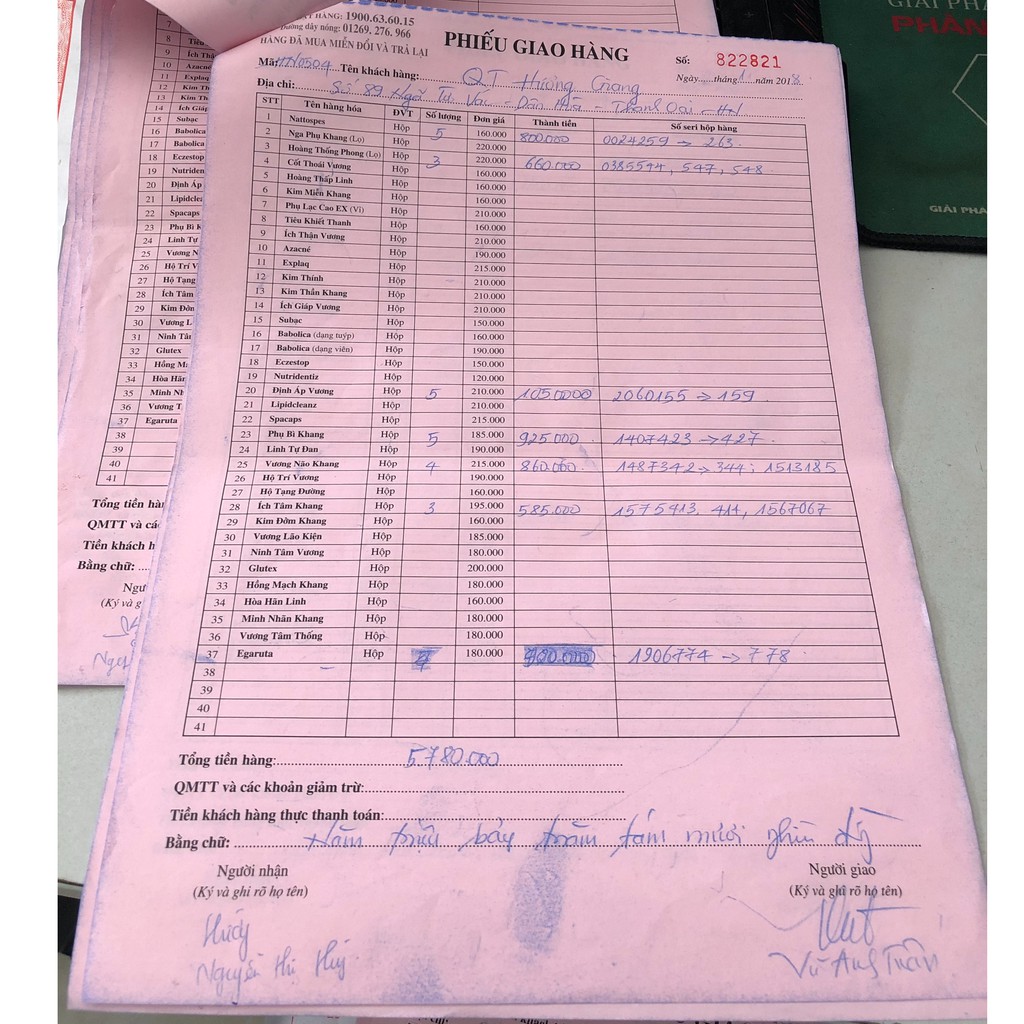 HÀNG: 1900.63.60.15
đường dây nóng: 01269. 276. 966
HÀNG ĐÃ MUA MIỄN ĐỔI VÀ TRẢ LẠI
PHIẾU GIAO HÀNG
Số: 822821
Mã: HN0504 Tên khách hàng: QT Hương Giang
Ngày.....tháng 1 năm 2018
Địa chỉ: Số 89 Ngã Tư Vác - Dân Hòa - Thanh Oai - HN
STT Tên hàng hóa ĐVT Số lượng Đơn giá Thành tiền Số seri hộp hàng
1 Nattospes Hộp 5 160.000 800.000 0024259 → 263.
2 Nga Phụ Khang (Lọ) Hộp 220.000
3 Hoàng Thống Phong (Lọ) Hộp 3 220.000 660.000 0385544, 547, 548
4 Cốt Thoái Vương Hộp 160.000
5 Hoàng Thấp Linh Hộp 160.000
6 Kim Miễn Khang Hộp 160.000
7 Phụ Lạc Cao EX (Vỉ) Hộp 210.000
8 Tiêu Khiết Thanh Hộp 160.000
9 Ích Thận Vương Hộp 210.000
10 Azacné Hộp 190.000
11 Explaq Hộp 215.000
12 Kim Thính Hộp 210.000
13 Kim Thần Khang Hộp 210.000
14 Ích Giáp Vương Hộp 210.000
15 Subạc Hộp 150.000
16 Babolica (dạng tuýp) Hộp 160.000
17 Babolica (dạng viên) Hộp 190.000
18 Eczestop Hộp 150.000
19 Nutridentiz Hộp 120.000
20 Định Áp Vương Hộp 5 210.000 1050000 2060155 → 159.
21 Lipidcleanz Hộp 210.000
22 Spacaps Hộp 215.000
23 Phụ Bì Khang Hộp 5 185.000 925.000. 1407423 → 427.
24 Linh Tự Đan Hộp 190.000
25 Vương Não Khang Hộp 4 215.000 860.000. 1487342 → 344; 1513185
26 Hộ Trí Vương Hộp 190.000
27 Hộ Tạng Đường Hộp 160.000
28 Ích Tâm Khang Hộp 3 195.000 585.000 1575413, 414, 1567067
29 Kim Đởm Khang Hộp 160.000
30 Vương Lão Kiện Hộp 185.000
31 Ninh Tâm Vương Hộp 180.000
32 Glutex Hộp 200.000
33 Hồng Mạch Khang Hộp 180.000
34 Hòa Hãn Linh Hộp 160.000
35 Minh Nhãn Khang Hộp 180.000
36 Vương Tâm Thống Hộp 180.000
37 Egaruta Hộp 180.000 1906774 → 778.
38
39
40
41
Tổng tiền hàng: 5780.000
QMTT và các khoản giảm trừ:
Tiền khách hàng thực thanh toán:
Bằng chữ: Năm triệu bảy trăm tám mươi nghìn đồng
Người nhận Người giao
(Ký và ghi rõ họ tên) (Ký và ghi rõ họ tên)
Thúy
Nguyễn Thị Thúy Vũ Anh Tuấn